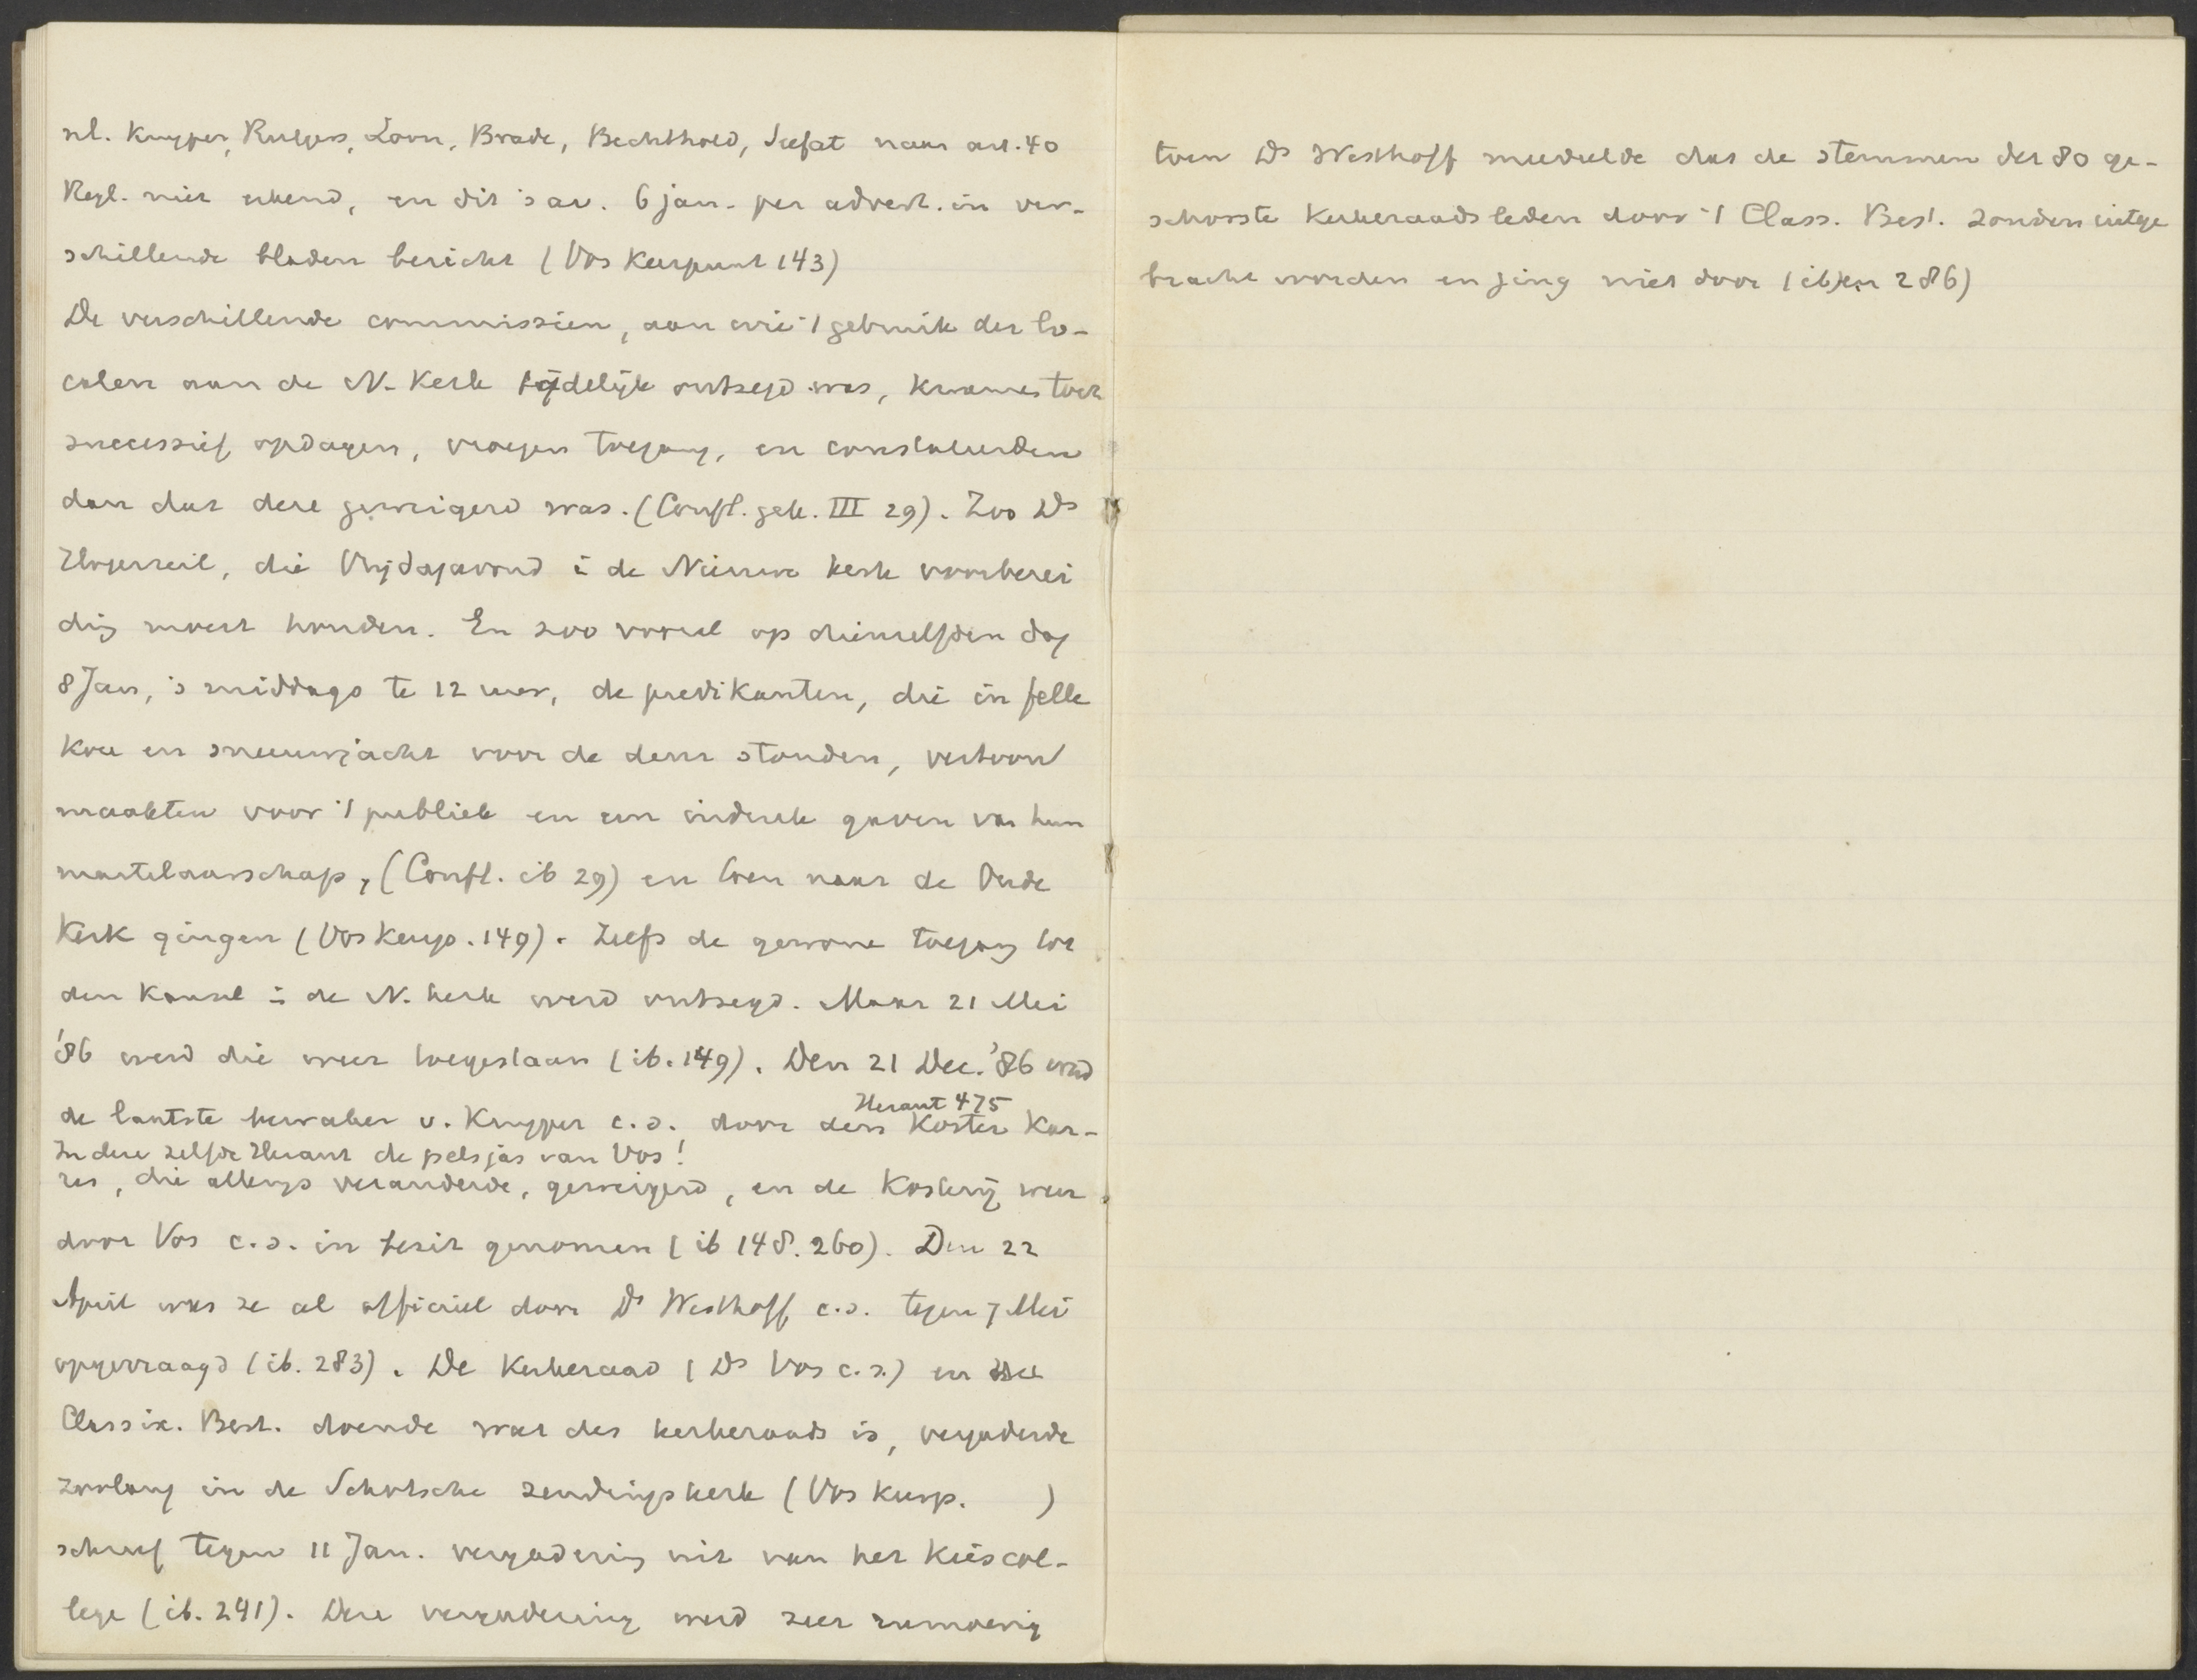 nl. Kuyper, Rutgers, Loon, Brade, Bechthold, Seefat naar art. 40
Regl. niet erkend, en dit 's av. 6 jan. per advert. in ver-
schillende bladen bericht (Vos Keerpunt 143)
De verschillende commissien, aan wie 't gebruik der lo-
calen aan de N. Kerk tijdelijk ontzegd was, kwamen toch
successief opdagen, vroegen toegang, en constateerden
dan dat deze geweigerd was. (Confl. gek. III 29). Zoo Ds
Hogerzeil, die Vrijdagavond i de Nieuwe kerk voorberei
ding moest houden. En zoo vooral op dienzelfden dag
8 Jan, 's middags te 12 uur, de predikanten, die in felle
kou en sneeuwjacht voor de deur stonden, vertoon
maakten voor 't publiek en een indruk gaven van hun
martelaarschap, (Confl. ib 29) en toen naar de Oude
Kerk gingen (Vos Keerp. 149). Zelfs de gewone toegang tot
den kansel i de N. kerk werd ontzegd. Maar 21 Mei
'86 werd die weer toegestaan (ib. 149). Den 21 Dec. '86 werd
Heraut 475
de laatste bewaker v. Kuyper c.s. door den Koster Kar-
In deze zelfde Heraut de pelsjas van Vos!
res, die allengs veranderde, geweigerd, en de Kosterij weer
door Vos c.s. in bezit genomen (ib 148. 260). Den 22
April was ze al officieel door Ds Westhoff c.s. tegen 7 Mei
opgevraagd (ib. 283). De Kerkeraad (Ds Vos c.s.) en
Classik. Best. doende wat des kerkeraads is, vergaderde
zoolang in de Schotsche zendingskerk (Vos Keerp. )
schreef tegen 11 Jan. vergadering uit van het Kiescol-
lege (ib. 241). Deze vergadering werd zeer rumoerig
toen Ds Westhoff meedeelde dat de stemmen der 80 ge-
schorste Kerkeraadsleden door 't Class. Best. zouden uitge
bracht worden en ging niet door (ib) en 286)